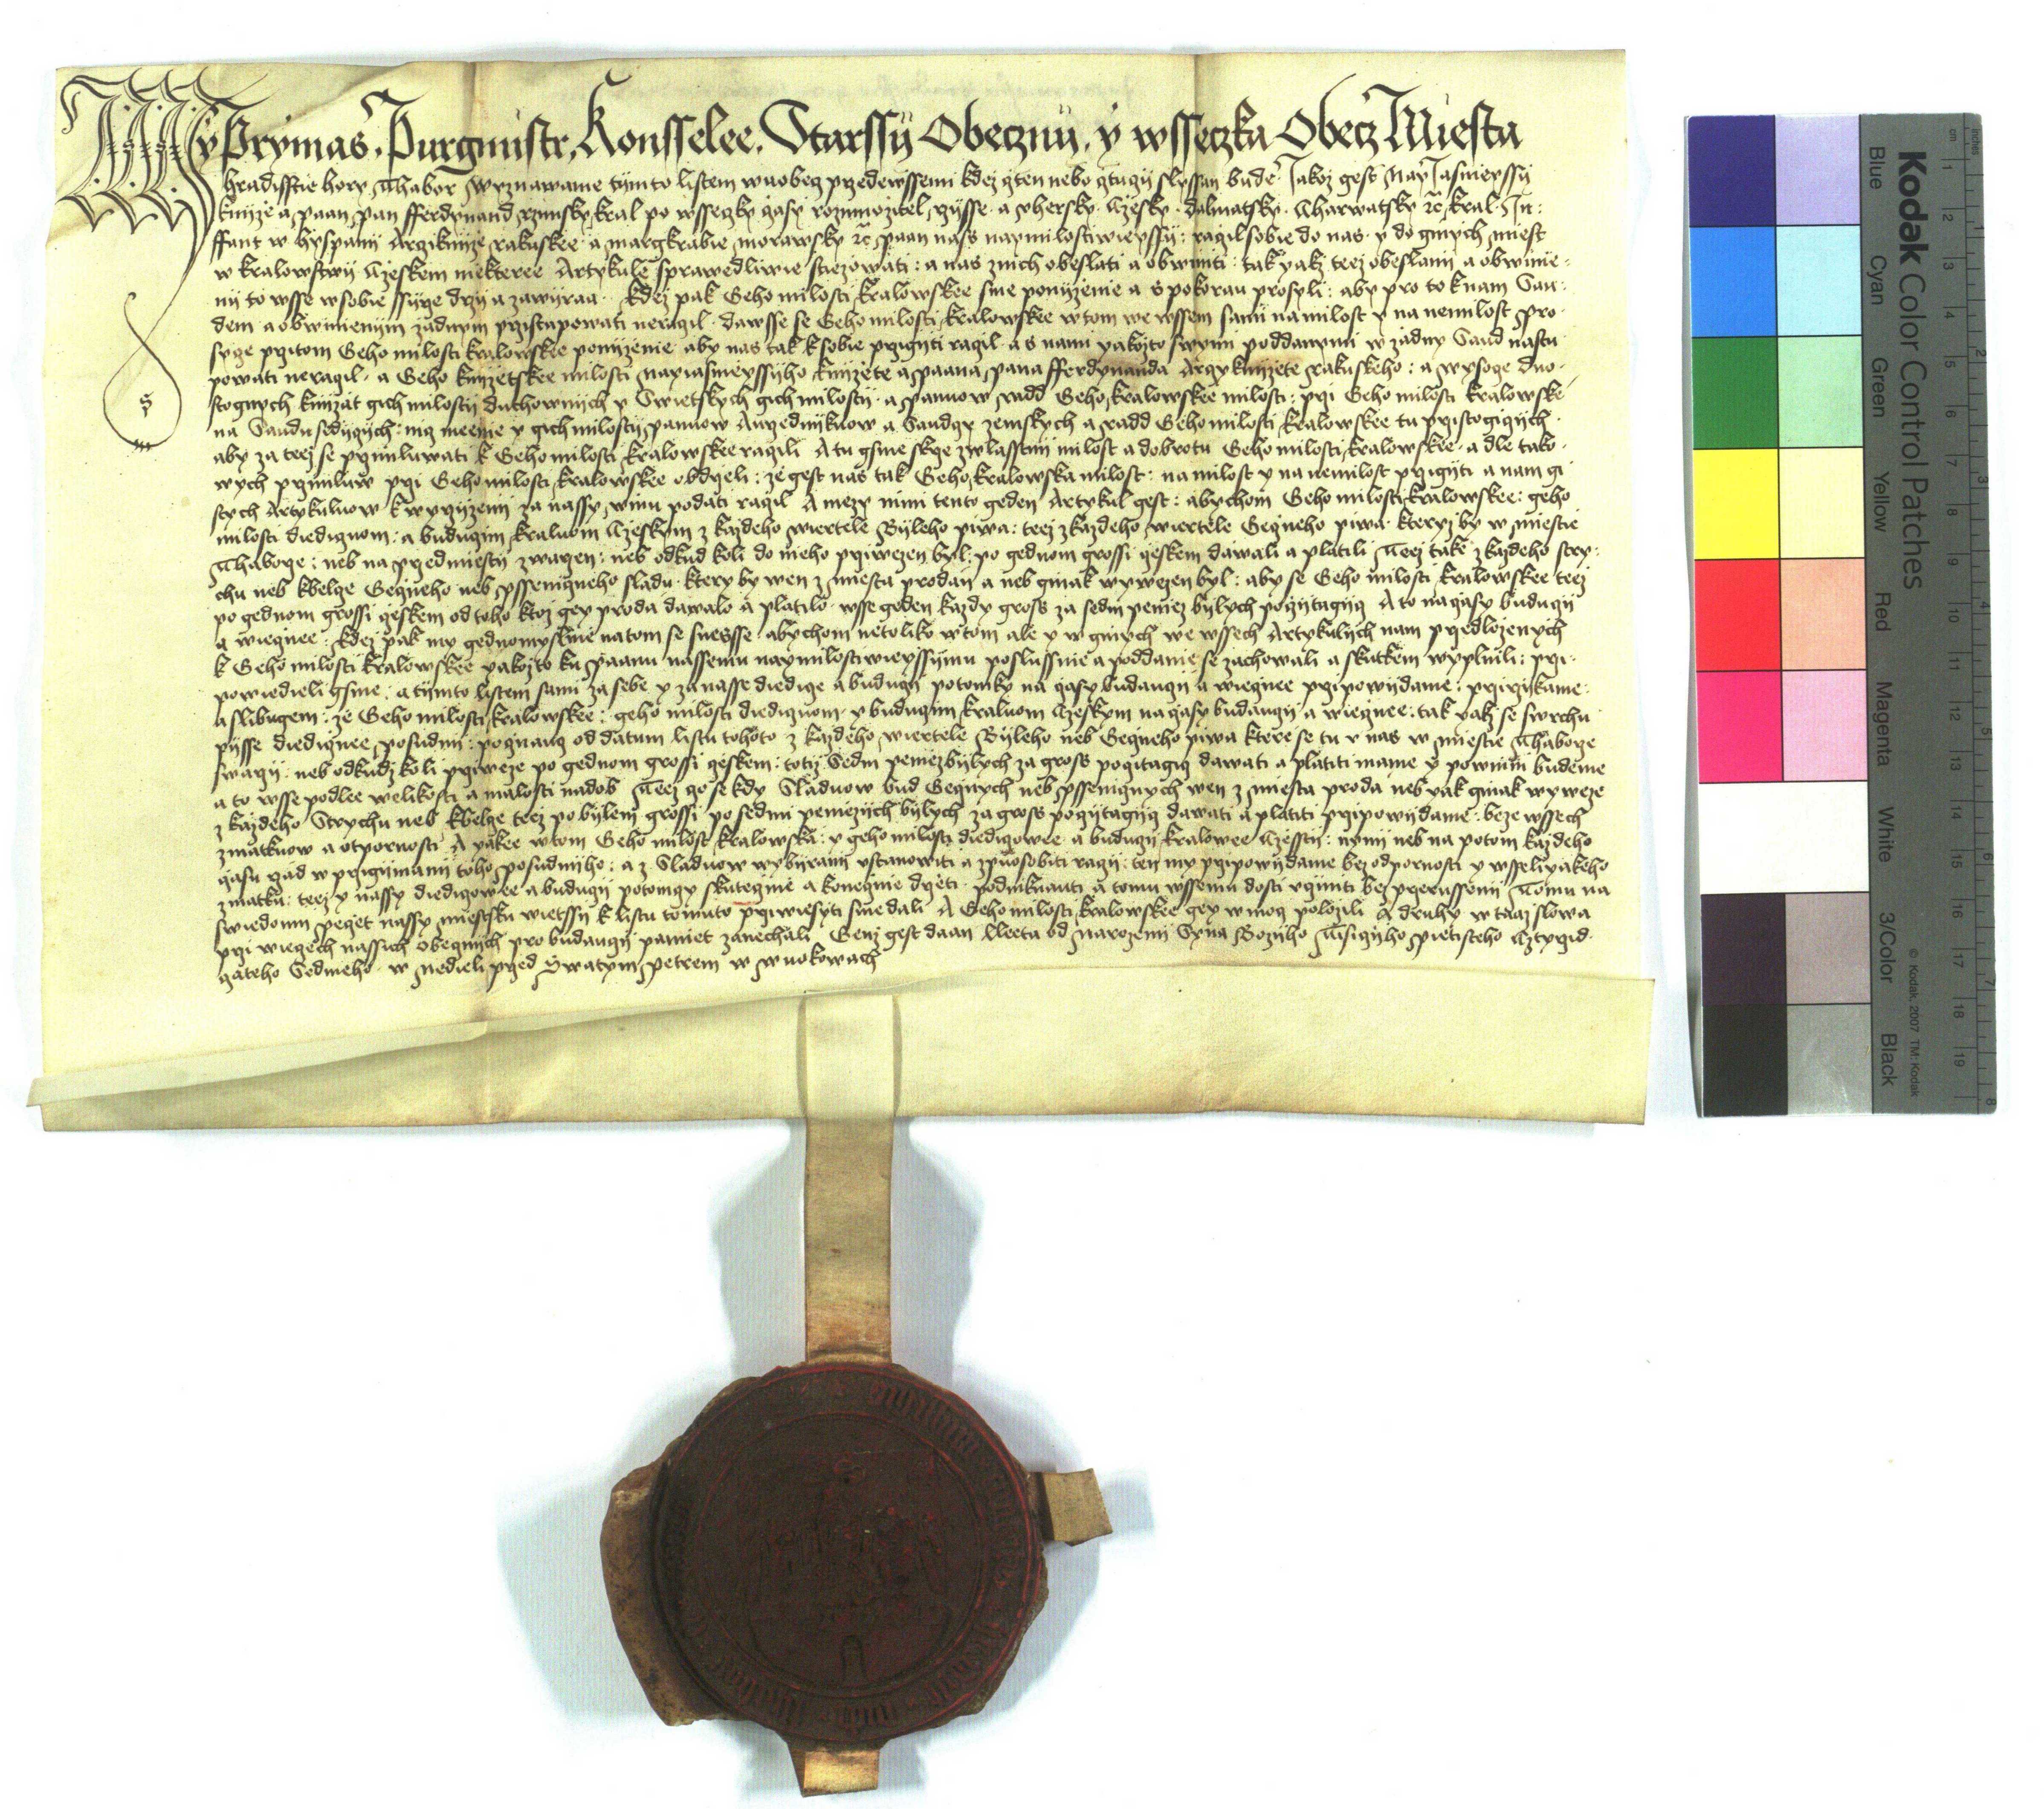 My Prymas, Purgmistr, Konsselee, Starssij Obecznij, y wsseczka Obecz Miesta
Hradisstie hory Thabor Wyznawame tijmto listem wuobecz przedewssemi kdež cžten nebo cžtucžij slyssan bude Jakož gest Nay Jasnieyssij
Knijže a Paan, Pan Fferdynand Rzimsky Kral po wsseczky cžasy rozmnožitel Rzijsse a Vhersky Cžesky Dalmatsky Charwatsky ꝛc̃ Kral In:
ffant w Hyspanij Arczikniže Rakuskee a Margkrabie Morawsky ꝛc̃ Paan nass naymilostiwieyssij: racžil sobie do nas y do ginych Miest
w Kralowstwij Cžeskem niekteree Artykule sprawedliwie stiežowati: a nas znich obeslati a obwiniti: tak yakž teež obeslanij a obwinie:
nij to wsse wsobie ssijrze držij a zawijraa Kdež pak Geho milosti Kralowskee sme ponijženie a s pokorau prosyli: aby pro to knam Sau:
dem a obwinienijm žadnym przistupowati neracžil dawsse se Geho milosti Kralowskee wtom we wssem sami na milost y na nemilost Pro:
sycze przitom Geho milosti Kralowskee ponijženie aby nas tak ksobie przigijti racžil a s nami yakožto swymi poddanymi w žadny Saud nastu
powati neracžil a Geho Knijžetskee milosti Nayjasnieyssijho Knijžete a Paana Pana Fferdynanda Arczyknijžete Rakuskeho: a wysocze duo:
stognych Knijžat gich milostij duchownijch y Swietskych gich milostij a Panuow Radd Geho Kralowskee milosti: przi Geho milosti Kralowske
na Saudu sediczijch: nicz meenie y gich milostij Panuow Aurzednijkuow a Saudczy zemskych a Radd Geho milosti Kralowskee tu przistogiczijch
aby za teež se przimluwati k Geho milosti Kralowskee racžili A tu gsme skrze zwlasstnij milost a dobrotu Geho milosti Kralowskee a dle tako:
wych przimluw przi Geho milosti Kralowskee obdrželi: že gest nas tak Geho Kralowska milost: na milost y na nemilost przigijti a nam gi
stych Artykuluow k wyrzijzenij za nassy winu podati racžil A mezy nimi tento geden Artykul gest: abychom Geho milosti Kralowskee: geho
milosti diedicžuom: a buducžim Kraluom Cžeskym z každeho wiertele Bijleho piwa: teež z každeho wiertele Gecžneho piwa kteryž by w Miestie
Thaborze: neb na Przedmiestij zwarzen: neb odkud koli do nieho prziwezen byl: po gednom grossi cžeskem dawali a platili Teež take z každeho stry:
chu neb kbelcze Gecžneho neb Pssenicžneho sladu ktery by wen z Miesta prodan a neb ginak wywezen byl: aby se Geho milosti Kralowskee teež
po gednom grossi cžeskem od toho ktož gey proda dawalo a platilo wsse geden každy gross za sedm peniez bijlych pocžijtagijcz A to na cžasy buducžij
a wiecžnee: Kdež pak my gednomyslnie na tom se snessse abychom netoliko wtom ale y w ginych we wssech Artykulijch nam przedloženych
k Geho milosti Kralowskee yakožto ku Paanu nassemu naymilostiwieyssijmu poslussnie a poddanie se zachowali a skutkem wyplnili: przi:
powiedieli gsme: a tijmto listem sami za sebe y za nasse diedicže a buducžij potomky na cžasy budauczij a wiecžnee przipowijdame: przirzijkame:
a slibugem: že Geho milosti Kralowskee: geho milosti diedicžuom y buducžim Kraluom Cžeskym na cžasy budauczij a wiecžnee: tak yakž se swrchu
pijsse diedicžnee Posudnij: pocžnaucz od datum listu tohoto z každeho wiertele Bijleho neb Gecžneho piwa ktere se tu v nas w Miestie Thaborze
swarzij: neb odkudž koli prziweze po gednom grossi cžeskem: totiž Sedm peniez bijlych za gross pocžitagijcz dawati a platiti mame y powinni budeme
a to wsse podlee welikosti a malosti nadob Teež cžo se kdy Sladuow bud Gecžnych neb Pssenicžnych wen z Miesta proda neb yak ginak wyweze
z každeho Strychu neb kbelcze teež po bijlem grossi po sedmi peniezijch bijlych za gross pocžijtagijcz dawati a platiti przipowijdame: beze wssech
zmatkuow a otpornosti A yakee wtom Geho milost Kralowska: y geho milosti diedicžowee a buducžij Kralowee Cžesstij: nynij neb na potom každeho
cžasu rzad w przigijmanij toho Posudnijho: a z Sladuow wybijranij vstanowiti a zpuosobiti racžij: ten my przipowijdame bez odpornosti y wsselijyakeho
zmatku: teež y nassy diedicžowee a buducžij potomczy skutecžnie a konecžnie držeti podniknauti a tomu wssemu dosti vcžiniti bez przerussenij Tomu na
swiedomij Pecžet nassy Miestsku wietssij k listu tomuto prziwiesyti sme dali A Geho milosti Kralowskee gey w mocz položili A druhy w taaž slowa
przi wieczech nassich obecznijch pro budauczij pamiet zanechali Genž gest daan Leeta od Narozenij Syna Božijho Tisyczijho Pietisteho Cžtyrzid
czateho Sedmeho w Nedieli przed Swatym Petrem w wuokowach